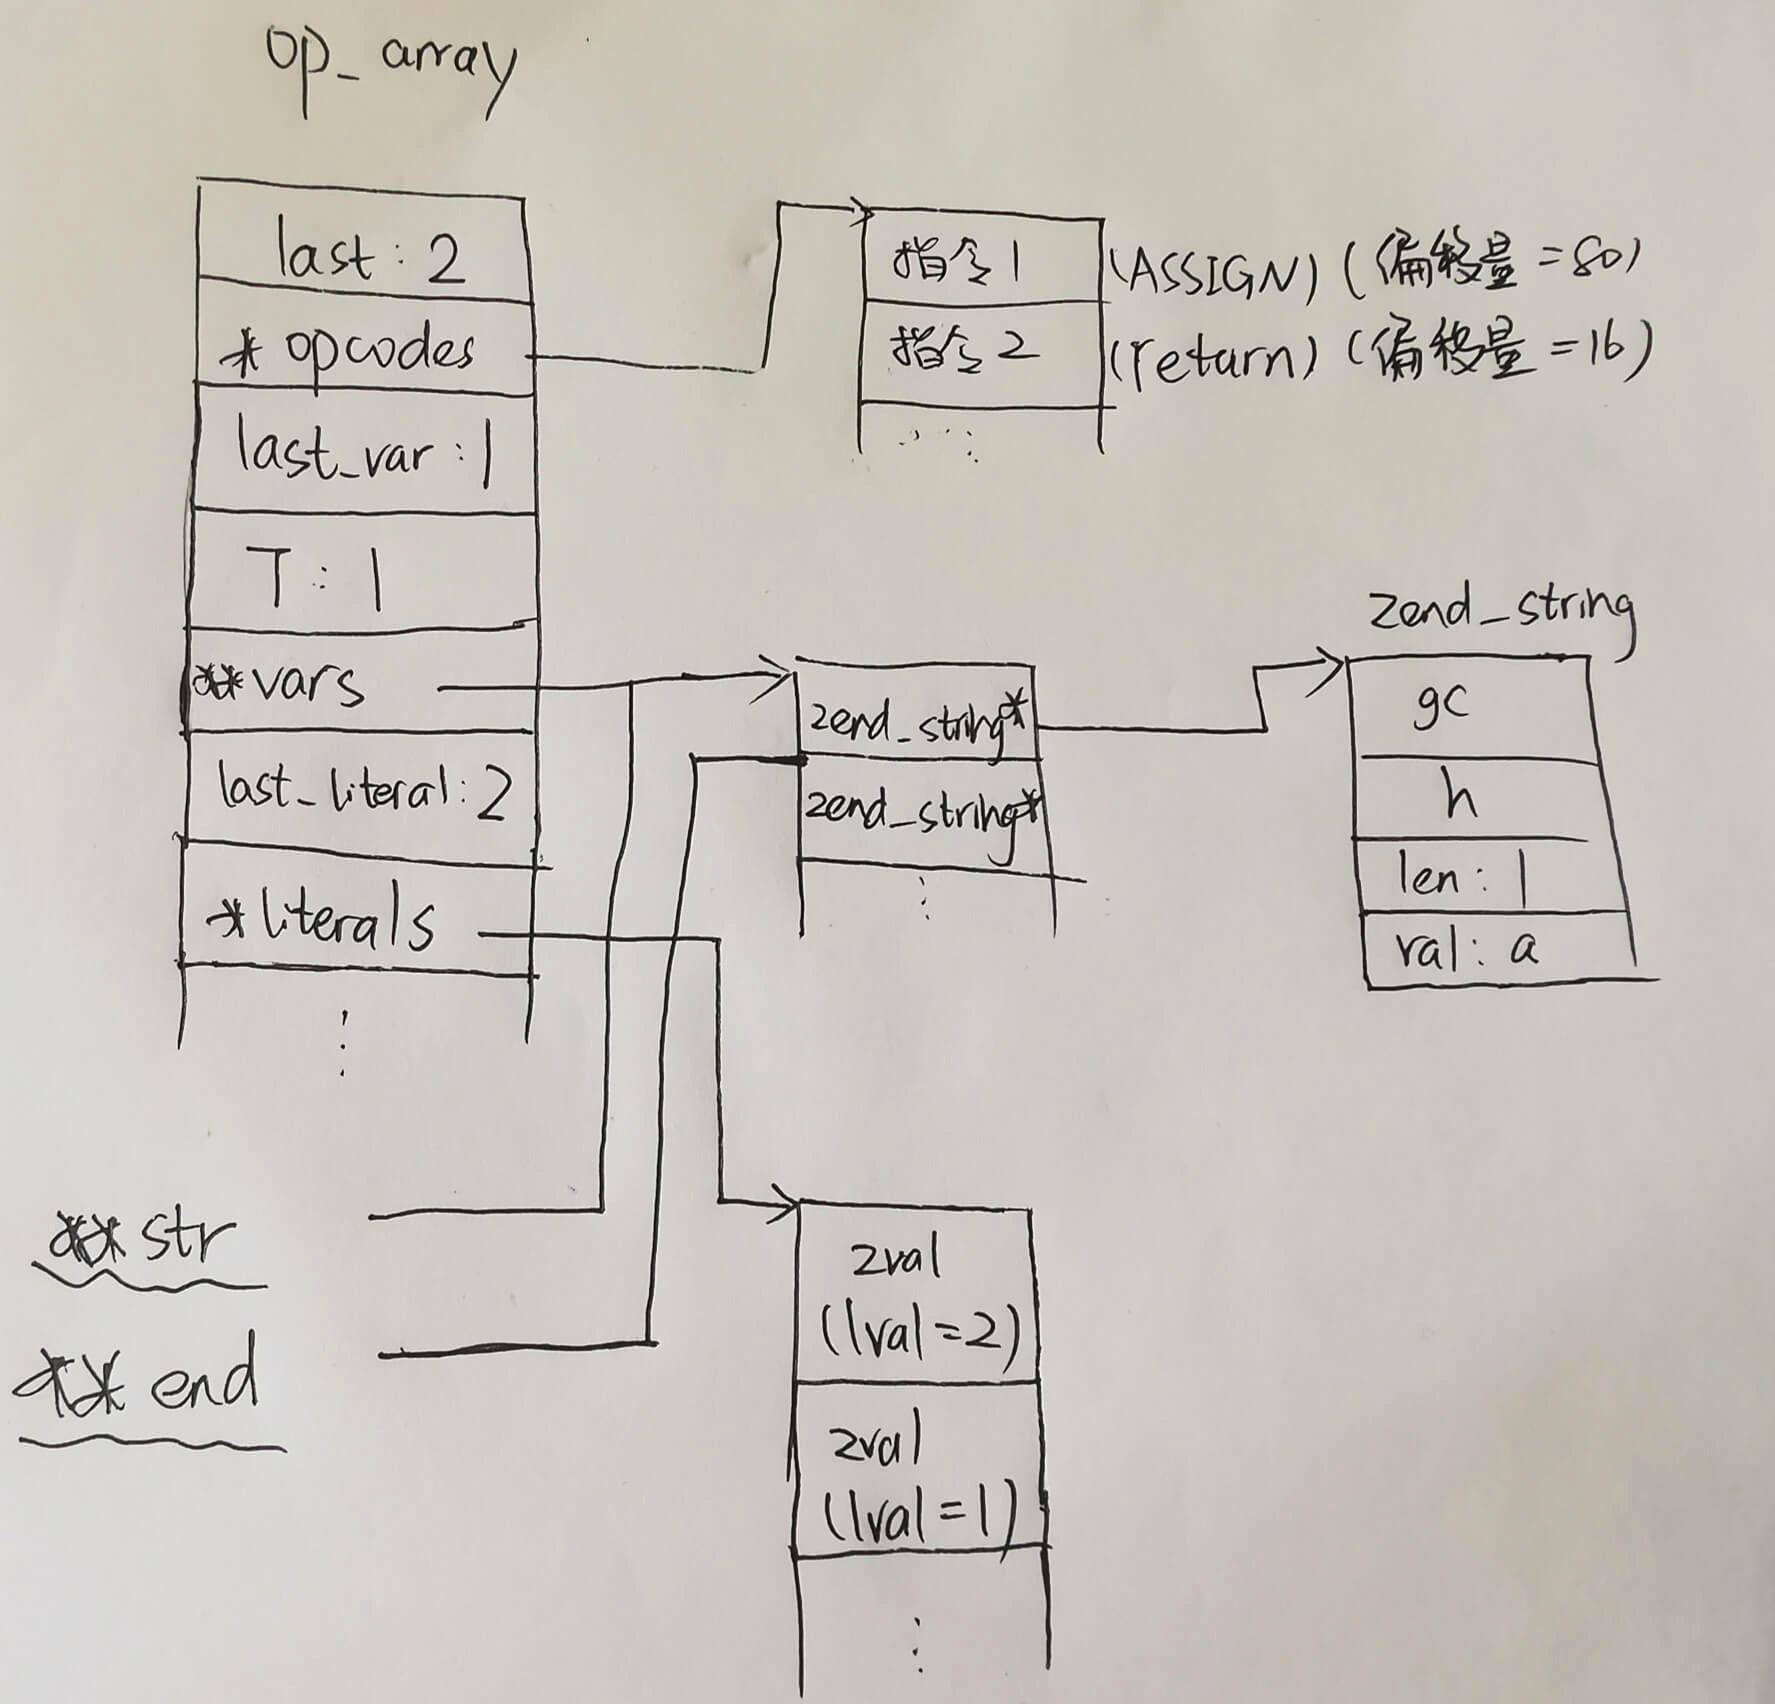 op_array
last : 2
* opcodes
last_var : 1
T : 1
**vars
last_literal : 2
*literals
指令1 (ASSIGN) (偏移量=80)
指令2 (return) (偏移量=16)
zend_string*
zend_string*
zend_string
gc
h
len : 1
val : a
**str
**end
zval
(lval=2)
zval
(lval=1)